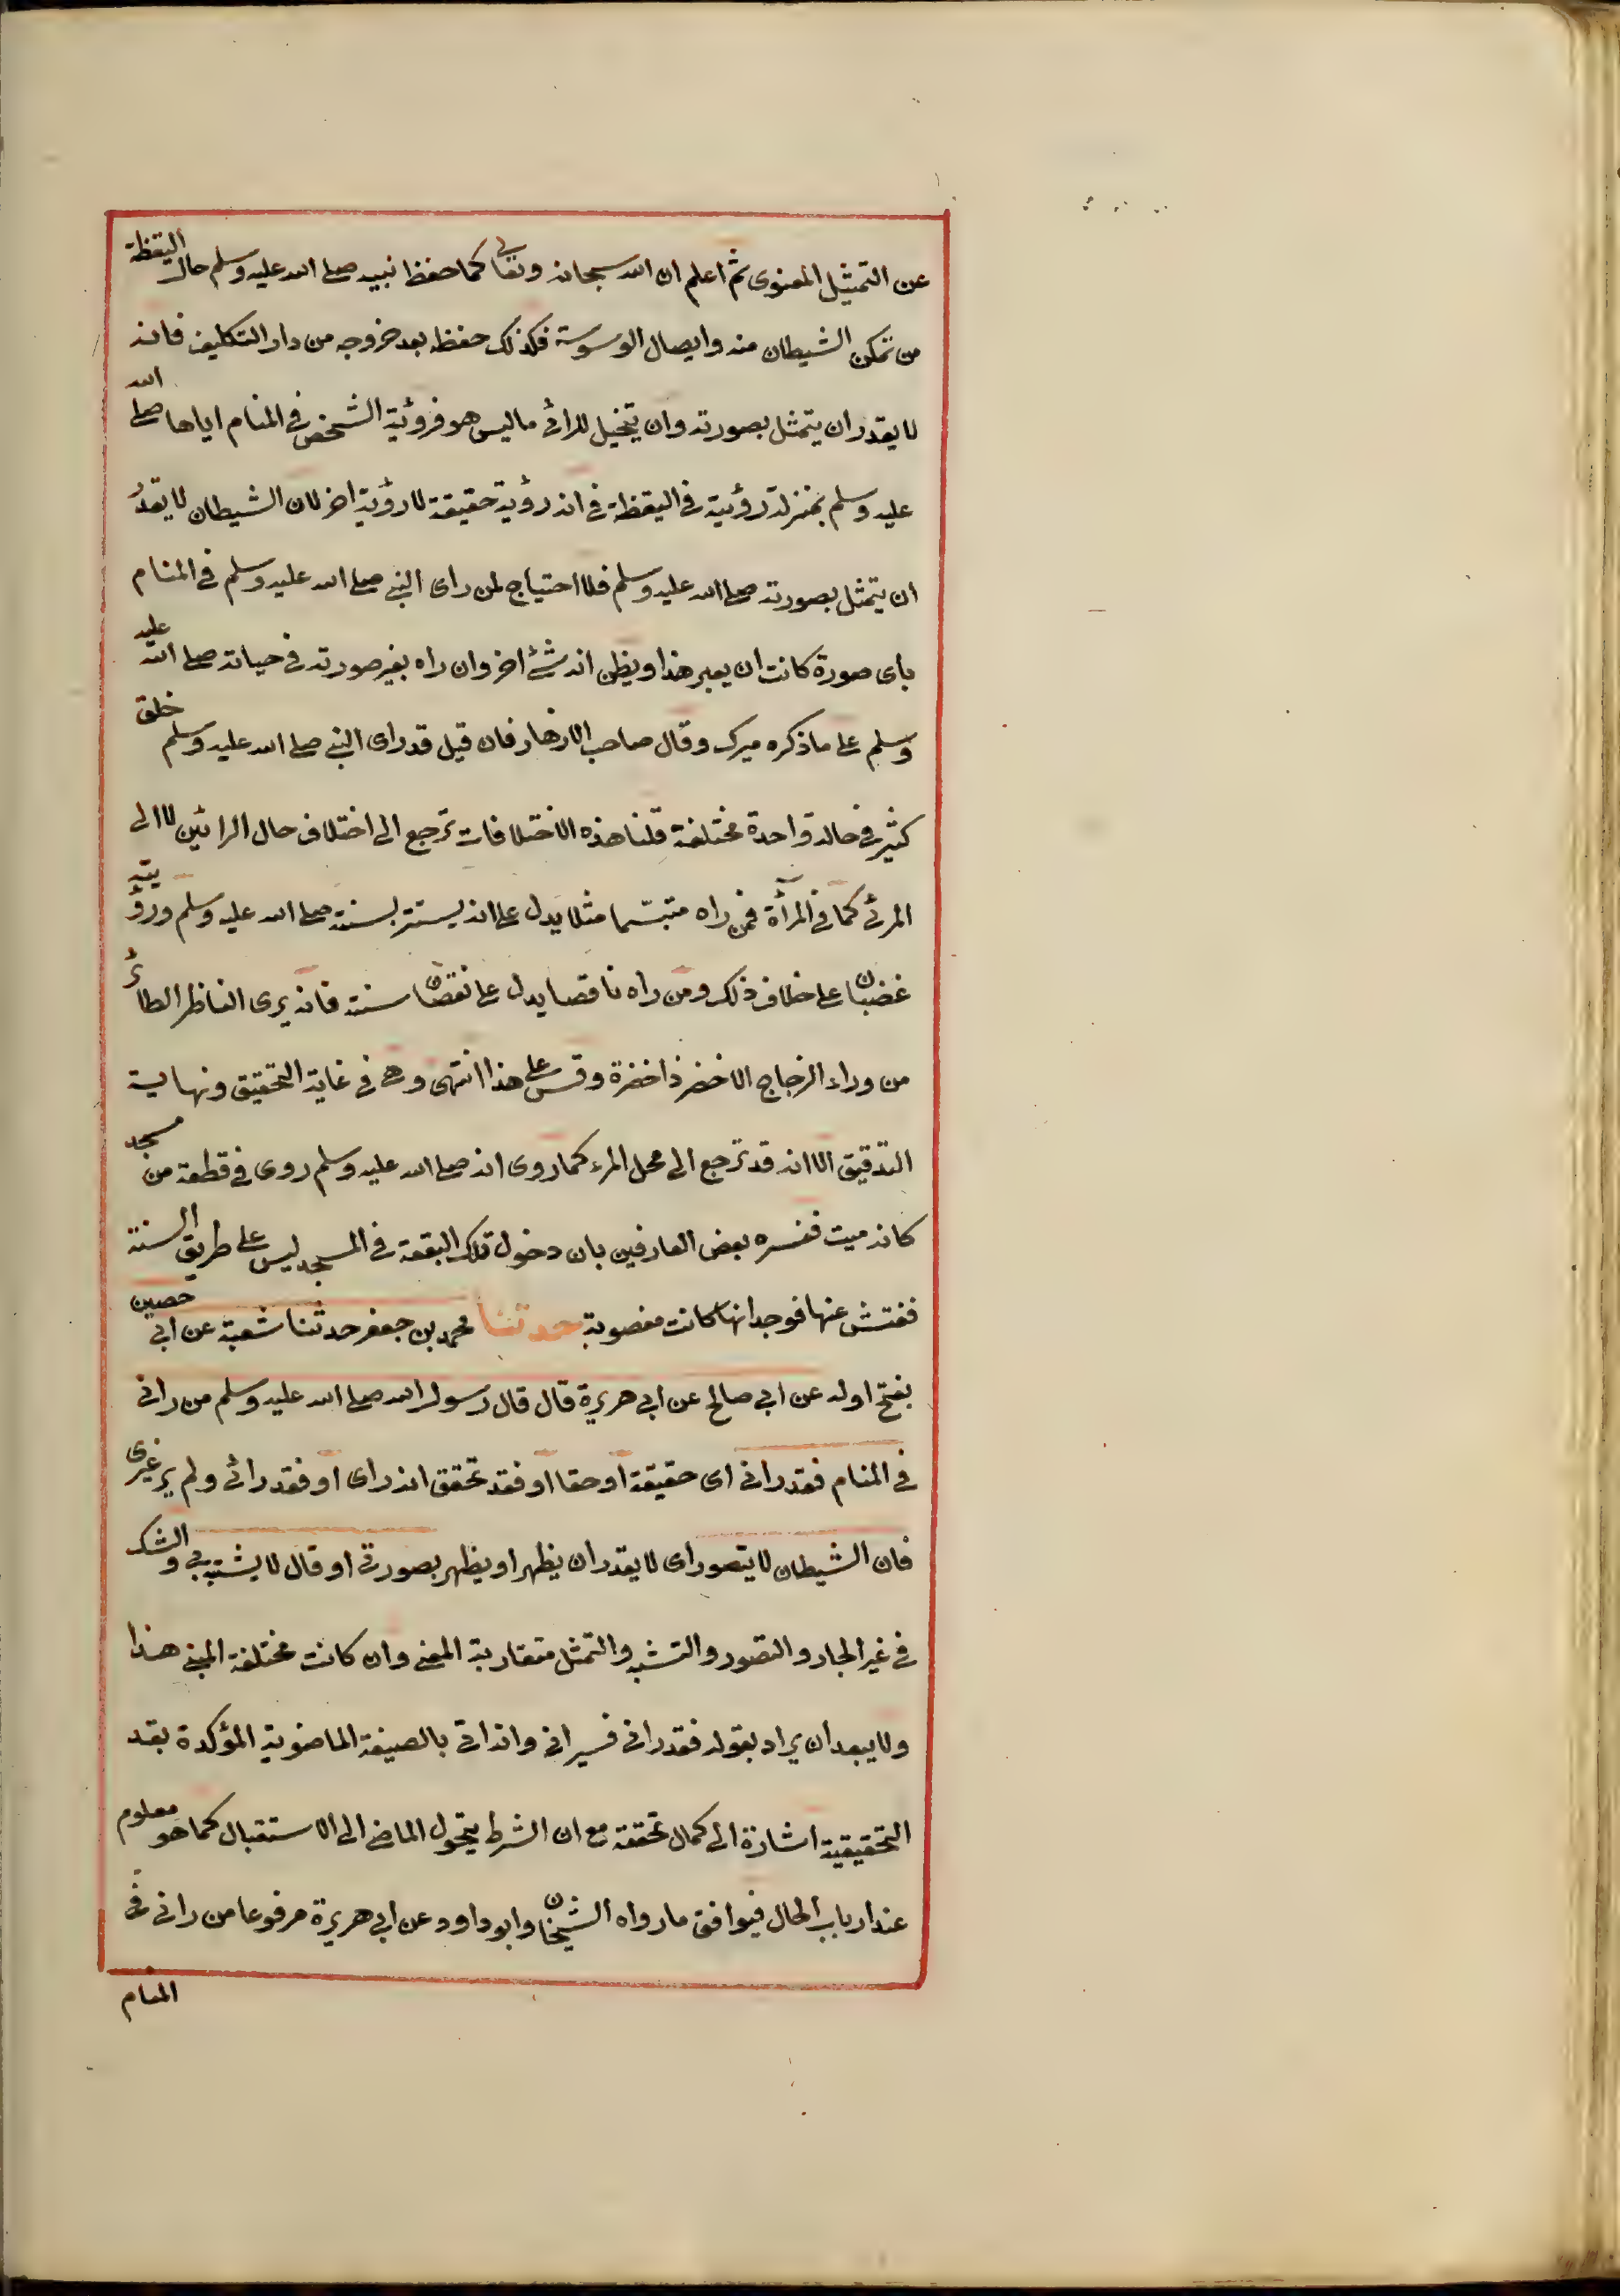 عن التمثيل المعنوى ثم اعلم ان الله سبحانه وتعالى كما حفظ نبيه صلى الله عليه وسلم حال اليقظة
من تمكن الشيطان منه وايصال الوسوسة فكذلك حفظه بعد خروجه من دار التكليف فانه
لا يقدر ان يتمثل بصورته وان يتخيل للرائى ما ليس هو فرؤية الشخص فى المنام اياها صلى الله
عليه وسلم بمنزلة رؤيته فى اليقظة فى انه رؤية حقيقة لا رؤية اخر لان الشيطان لا يقدر
ان يتمثل بصورته صلى الله عليه وسلم فلا احتياج لمن راى النبي صلى الله عليه وسلم فى المنام
باى صورة كانت ان يعبر هذا ويظن انه شئ اخر وان راه بغير صورته فى حياته صلى الله عليه
وسلم على ما ذكره ميرك وقال صاحب الازهار فان قيل قد راى النبي صلى الله عليه وسلم خلق
كثير فى حالة واحدة مختلفة قلنا هذه الاختلافات ترجع الى اختلاف حال الرائين لا الى
المرئى كما فى المرأة فمن راه متبسّما مثلا يدل على انه يستنّ بسنته صلى الله عليه وسلم ورؤيته
غضبان على خلاف ذلك ومن راه ناقصا يدل على نقصان سنته فانه يرى الناظر الطائر
من وراء الزجاج الاخضر ذا خضرة وقس على هذا انتهى وهى فى غاية التحقيق ونهاية
التدقيق الا انه قد ترجع الى محل المرء كما روى انه صلى الله عليه وسلم روى فى قطعة من مسجد
كانه ميت ففسره بعض العارفين بان دخول تلك البقعة فى المسجد ليس على طريق السنة
ففتش عنها فوجد انها كانت مغصوبة حدثنا محمد بن جعفر حدثنا شعبة عن ابي حصين
بفتح اوله عن ابي صالح عن ابي هريرة قال قال رسول الله صلى الله عليه وسلم من رانى
فى المنام فقد رانى اى حقيقة او حقا او فقد تحقق انه راى او فقد رائى ولم ير غيرى
فان الشيطان لا يتصور اى لا يقدر ان يظهر او يظهر بصورتى او قال لا يشتبه بي والشك
فى غير الجار والتصور والتشبه والتمثل متقاربة المعنى وان كانت مختلفة المبنى هذا
ولا يبعد ان يراد بقوله فقد رانى فسيرانى وانه اتى بالصيغة الماضوية المؤكدة بقد
التحقيقية اشارة الى كمال تحققه مع ان الشرط يتحول الماضى الى الاستقبال كما هو معلوم
عند ارباب الحال فيوافق ما رواه الشيخان وابو داود عن ابي هريرة مرفوعا من رانى فى
المنام